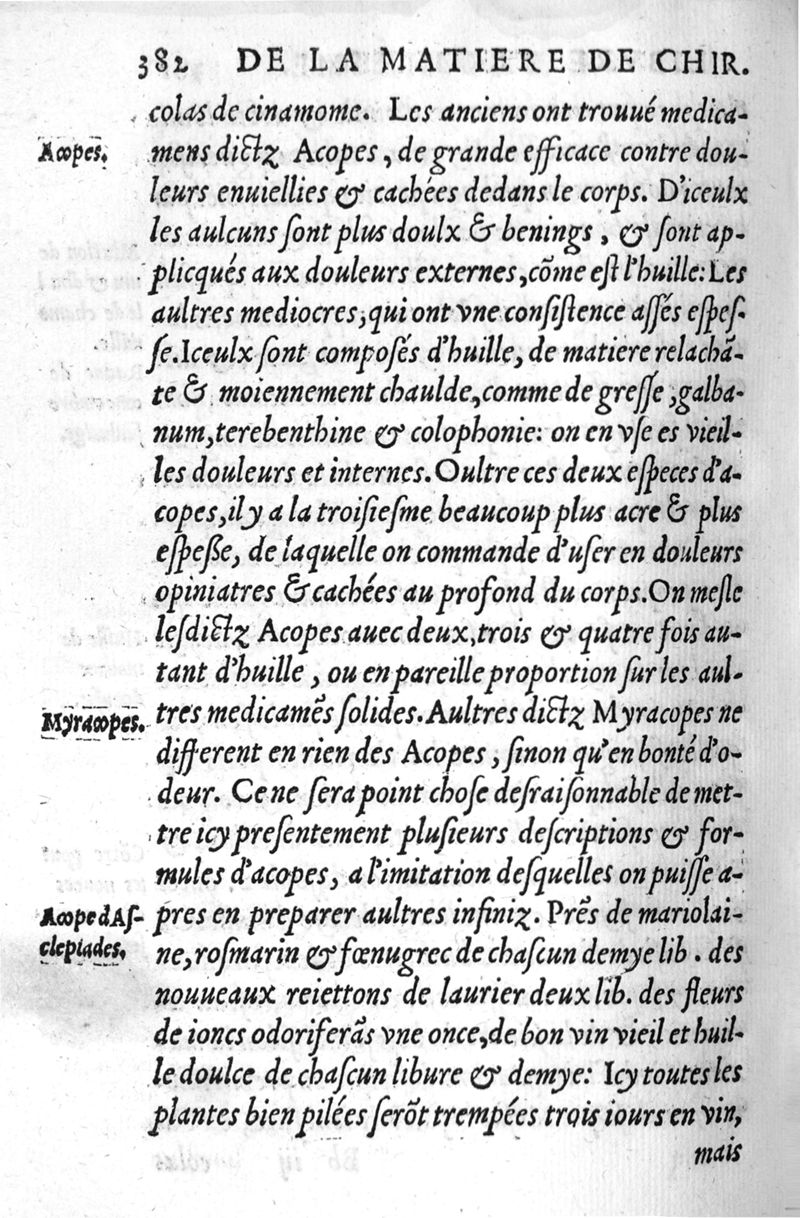 382 DE LA MATIERE DE CHIR.
colas de cinamome. Les anciens ont trouué medica-
Acopes.
mens dictz Acopes, de grande efficace contre dou-
leurs enuiellies & cachées dedans le corps. D'iceulx
les aulcuns ſont plus doulx & benings, & ſont ap-
plicqués aux douleurs externes, cõme eſt l'huille: Les
aultres mediocres, qui ont vne conſiſtence aſſés eſpeſ-
ſe. Iceulx ſont compoſés d'huille, de matiere relachã-
te & moiennement chaulde, comme de greſſe, galba-
num, terebenthine & colophonie: on en vſe es vieil-
les douleurs et internes. Oultre ces deux eſpeces d'a-
copes, il y a la troiſieſme beaucoup plus acre & plus
eſpeſſe, de laquelle on commande d'uſer en douleurs
opiniatres & cachées au profond du corps. On meſle
leſdictz Acopes auec deux, trois & quatre fois au-
tant d'huille, ou en pareille proportion ſur les aul-
Myracopes.
tres medicamẽs ſolides. Aultres dictz Myracopes ne
different en rien des Acopes, ſinon qu'en bonté d'o-
deur. Ce ne ſera point choſe deſraiſonnable de met-
tre icy preſentement pluſieurs deſcriptions & for-
mules d'acopes, a l'imitation deſquelles on puiſſe a-
Acope d'Aſ-
pres en preparer aultres infiniz. Prẽs de mariolai-
clepiades.
ne, roſmarin & fœnugrec de chaſcun demye lib. des
nouueaux reiettons de laurier deux lib. des fleurs
de ioncs odoriferãs vne once, de bon vin vieil et huil-
le doulce de chaſcun libure & demye: Icy toutes les
plantes bien pilées ſerõt trempées trois iours en vin,
mais